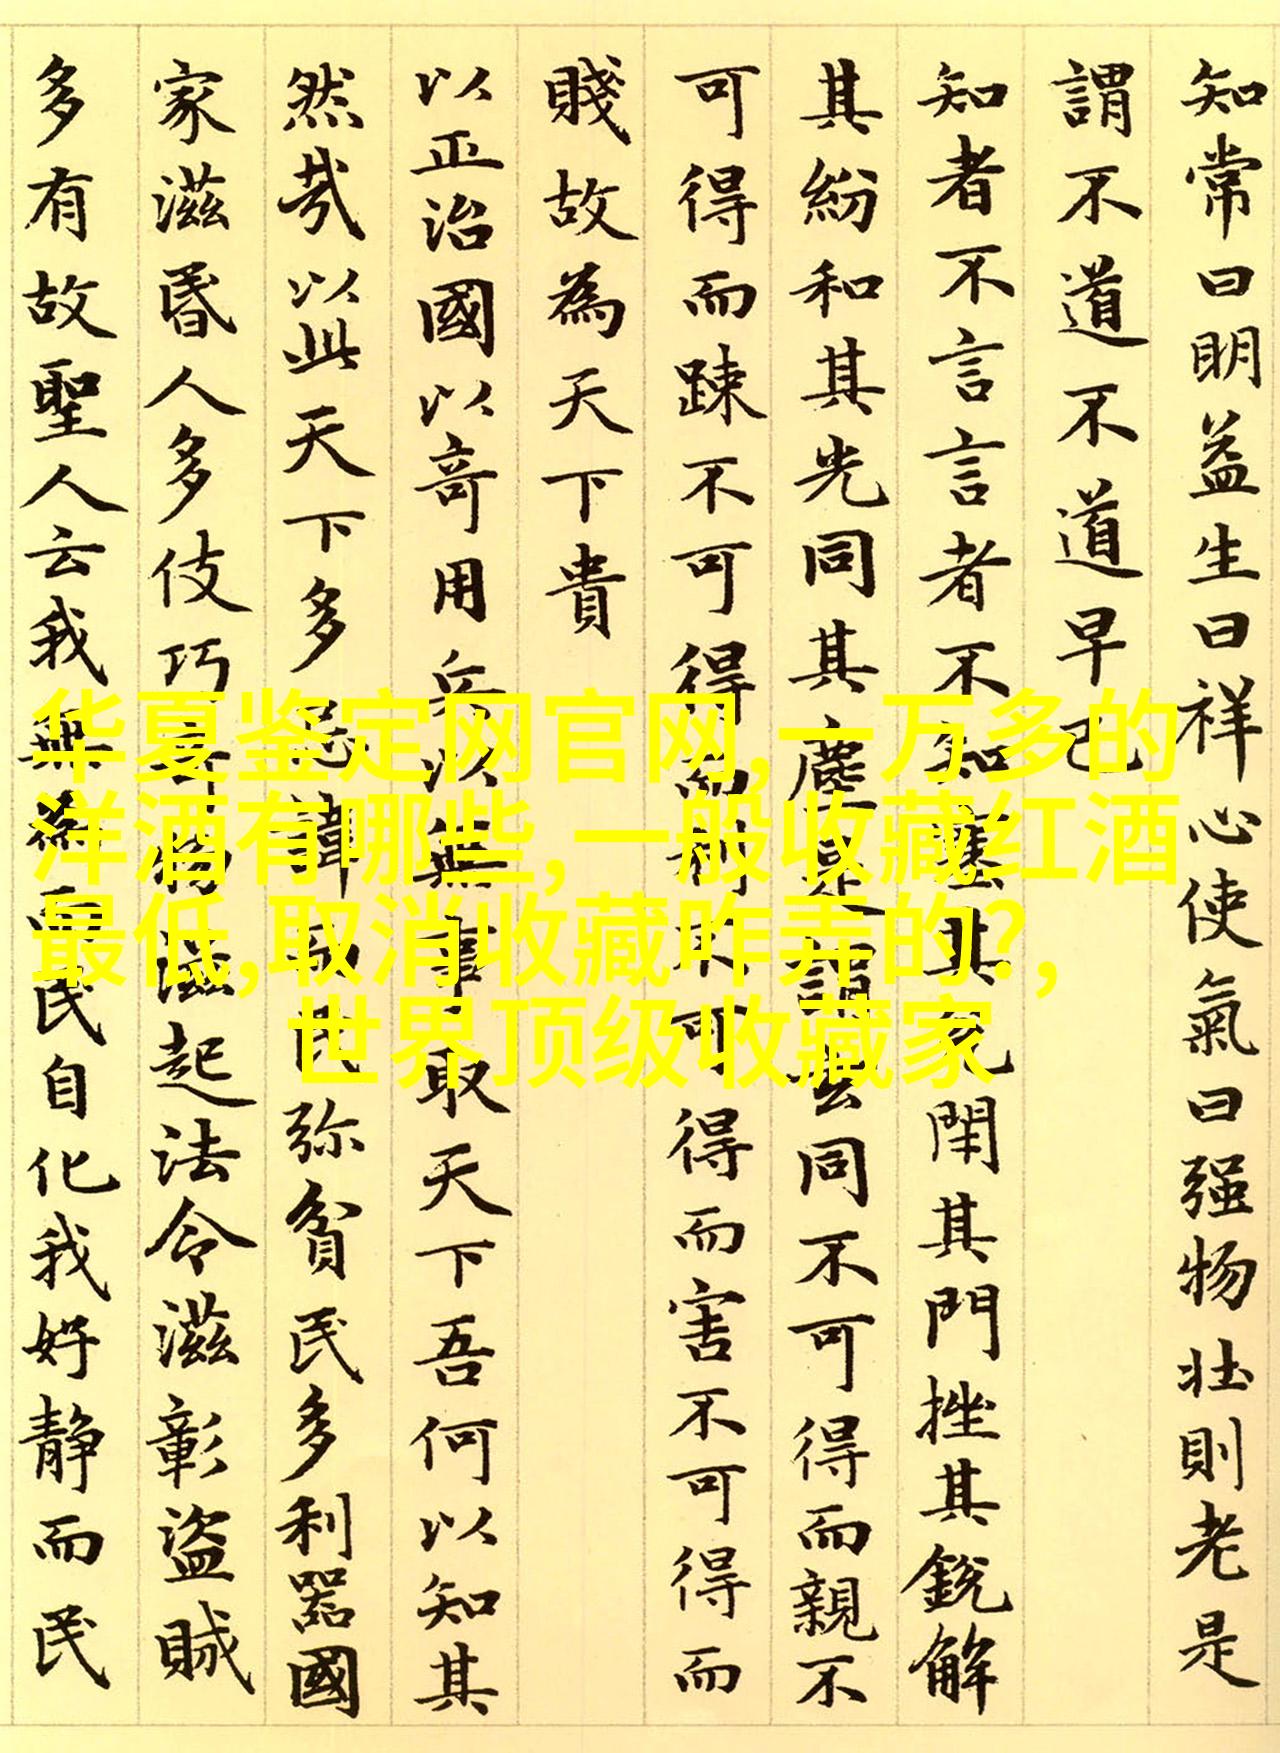 知常曰明益生曰祥心使氣曰强物壯則老是
謂不道不道早已
知者不言言者不知塞其兌閇其門挫其銳解
其紛和其光同其塵是謂玄同不可得而親不
可得而踈不可得而利不可得而害不可得而
賤故為天下貴
以正治國以竒用兵以無事取天下吾何以知其
然哉以此天下多忌諱而民弥貧民多利器國
家滋昬人多伎巧竒物滋起法令滋彰盜賊
多有故聖人云我無為而民自化我好静而民
华夏鉴定网官网,一万多的
洋酒有哪些,一般收藏红酒
最低,取消收藏咋弄的?,
世界顶级收藏家